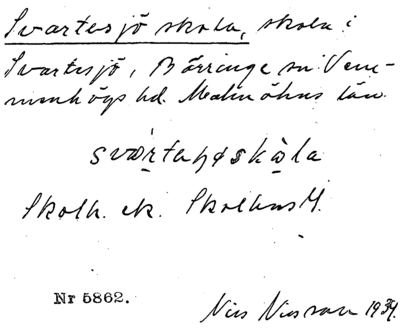 Svartesjö skola, skola i
Svartesjö, Börringe sn. Vem-
menhögs hd. Malmöhus län.
svar̀taʃøskɷ̀la
Skolk. ek. Skolhus 4.
Nr 5862.
Nils Nilsson 1934.